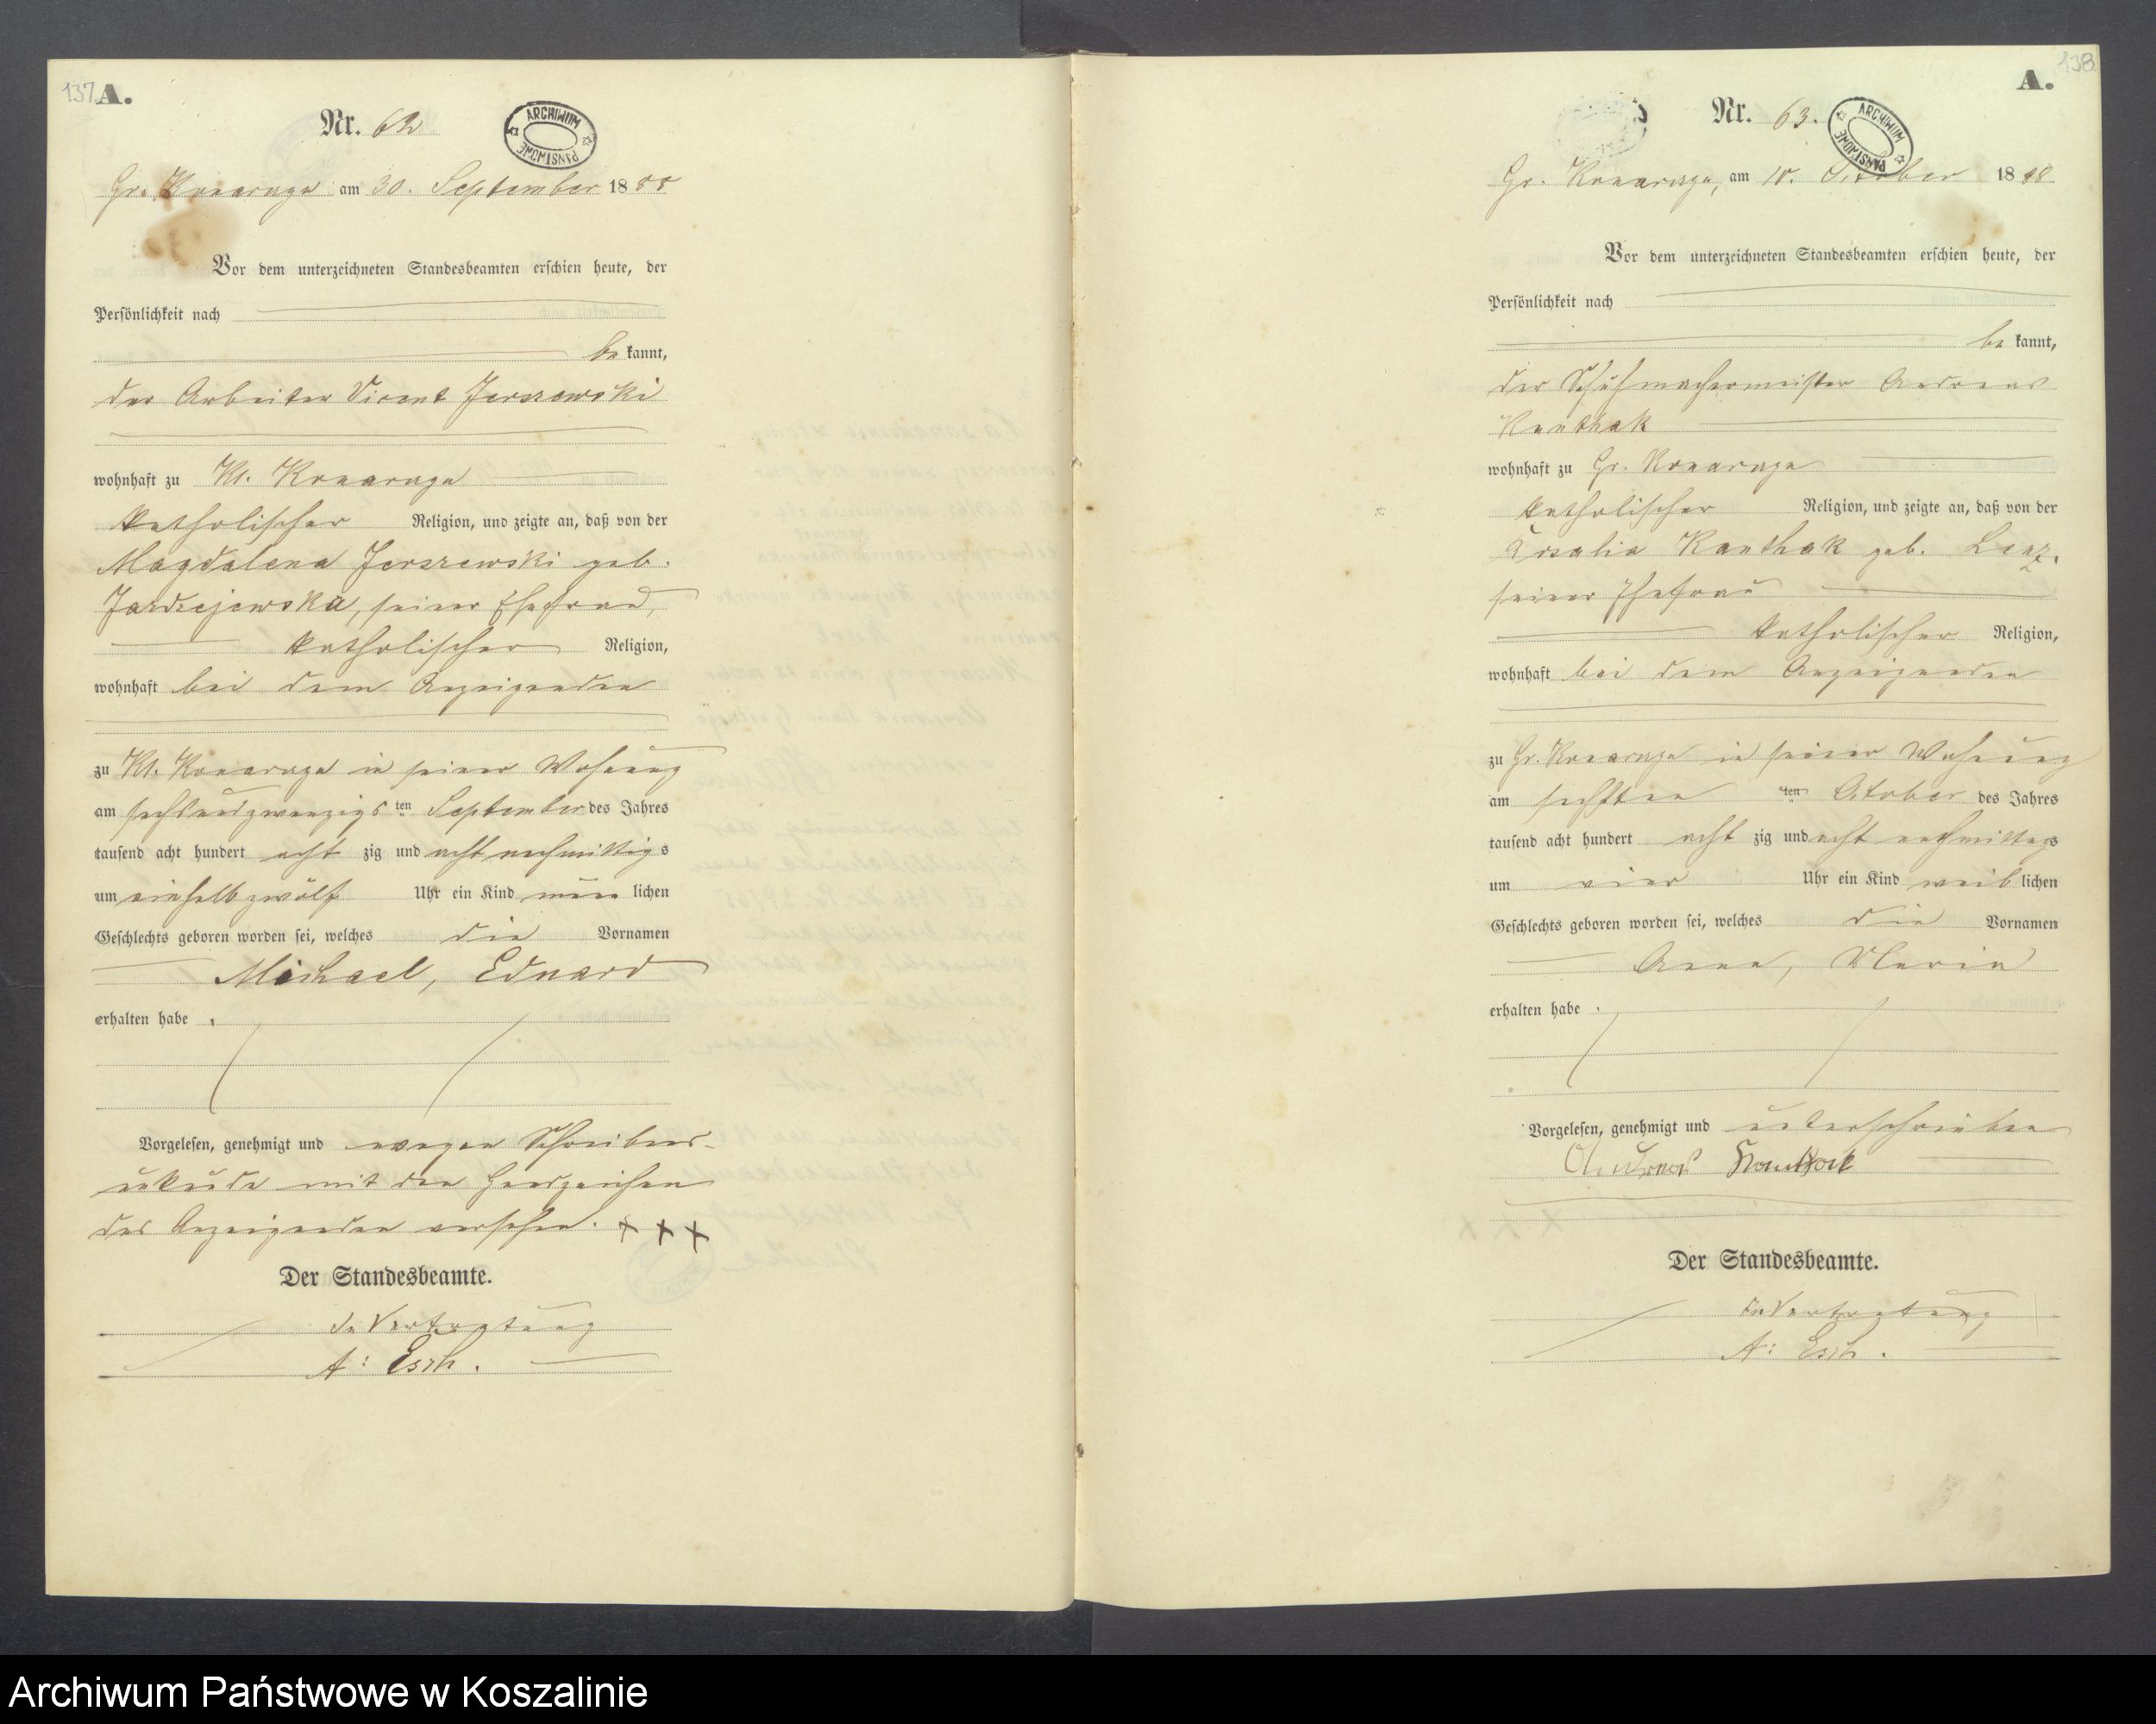 137 A.
Nr. 62
ARCHIWUM PAŃSTWOWE
Gr. Konarczyn am 30. September 1888
Vor dem unterzeichneten Standesbeamten erschien heute, der
Persönlichkeit nach
be kannt,
der Arbeiter Vicent Jerszewski
wohnhaft zu Kl. Konarczyn
katholischer Religion, und zeigte an, daß von der
Magdalena Jerszewski geb.
Jardzejewska, seiner Ehefrau,
katholischer Religion,
wohnhaft bei dem Anzeigenden
zu Kl. Konarczyn in seiner Wohnung
am sechsundzwanzigs ten September des Jahres
tausend acht hundert acht zig und acht nachmittags
um einhalb zwölf Uhr ein Kind männ lichen
Geschlechts geboren worden sei, welches die Vornamen
Michael, Eduard
erhalten habe.
Vorgelesen, genehmigt und wegen Schreibens-
unkunde mit den Handzeichen
des Anzeigenden versehen. + + +
Der Standesbeamte.
In Vertretung
A: Esch.
138
A.
Nr. 63.
ARCHIWUM PAŃSTWOWE
Gr. Konarczyn, am 10. October 1888
Vor dem unterzeichneten Standesbeamten erschien heute, der
Persönlichkeit nach
be kannt,
der Schuhmachermeister Andreas
Kanthak
wohnhaft zu Gr. Konarczyn
katholischer Religion, und zeigte an, daß von der
Kanthak geb. Lenz.
seiner Ehefrau
katholischer Religion,
wohnhaft bei dem Anzeigenden
zu Gr. Konarczyn in seiner Wohnung
am sechsten ten October des Jahres
tausend acht hundert acht zig und acht nachmittags
um vier Uhr ein Kind weib lichen
Geschlechts geboren worden sei, welches die Vornamen
Anna, Maria
erhalten habe.
Vorgelesen, genehmigt und unterschrieben
Andreas Kanthak
Der Standesbeamte.
In Vertretung
A: Esch.
Archiwum Państwowe w Koszalinie